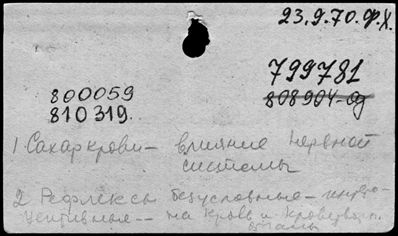 23.9.70.ф.х.
799781
808904-од
800059
810319.
1. Сахар крови - влияние нервной
системы
2. Рефлексы безусловные - интеро-
цептивные -- на кровь и кроветворн.